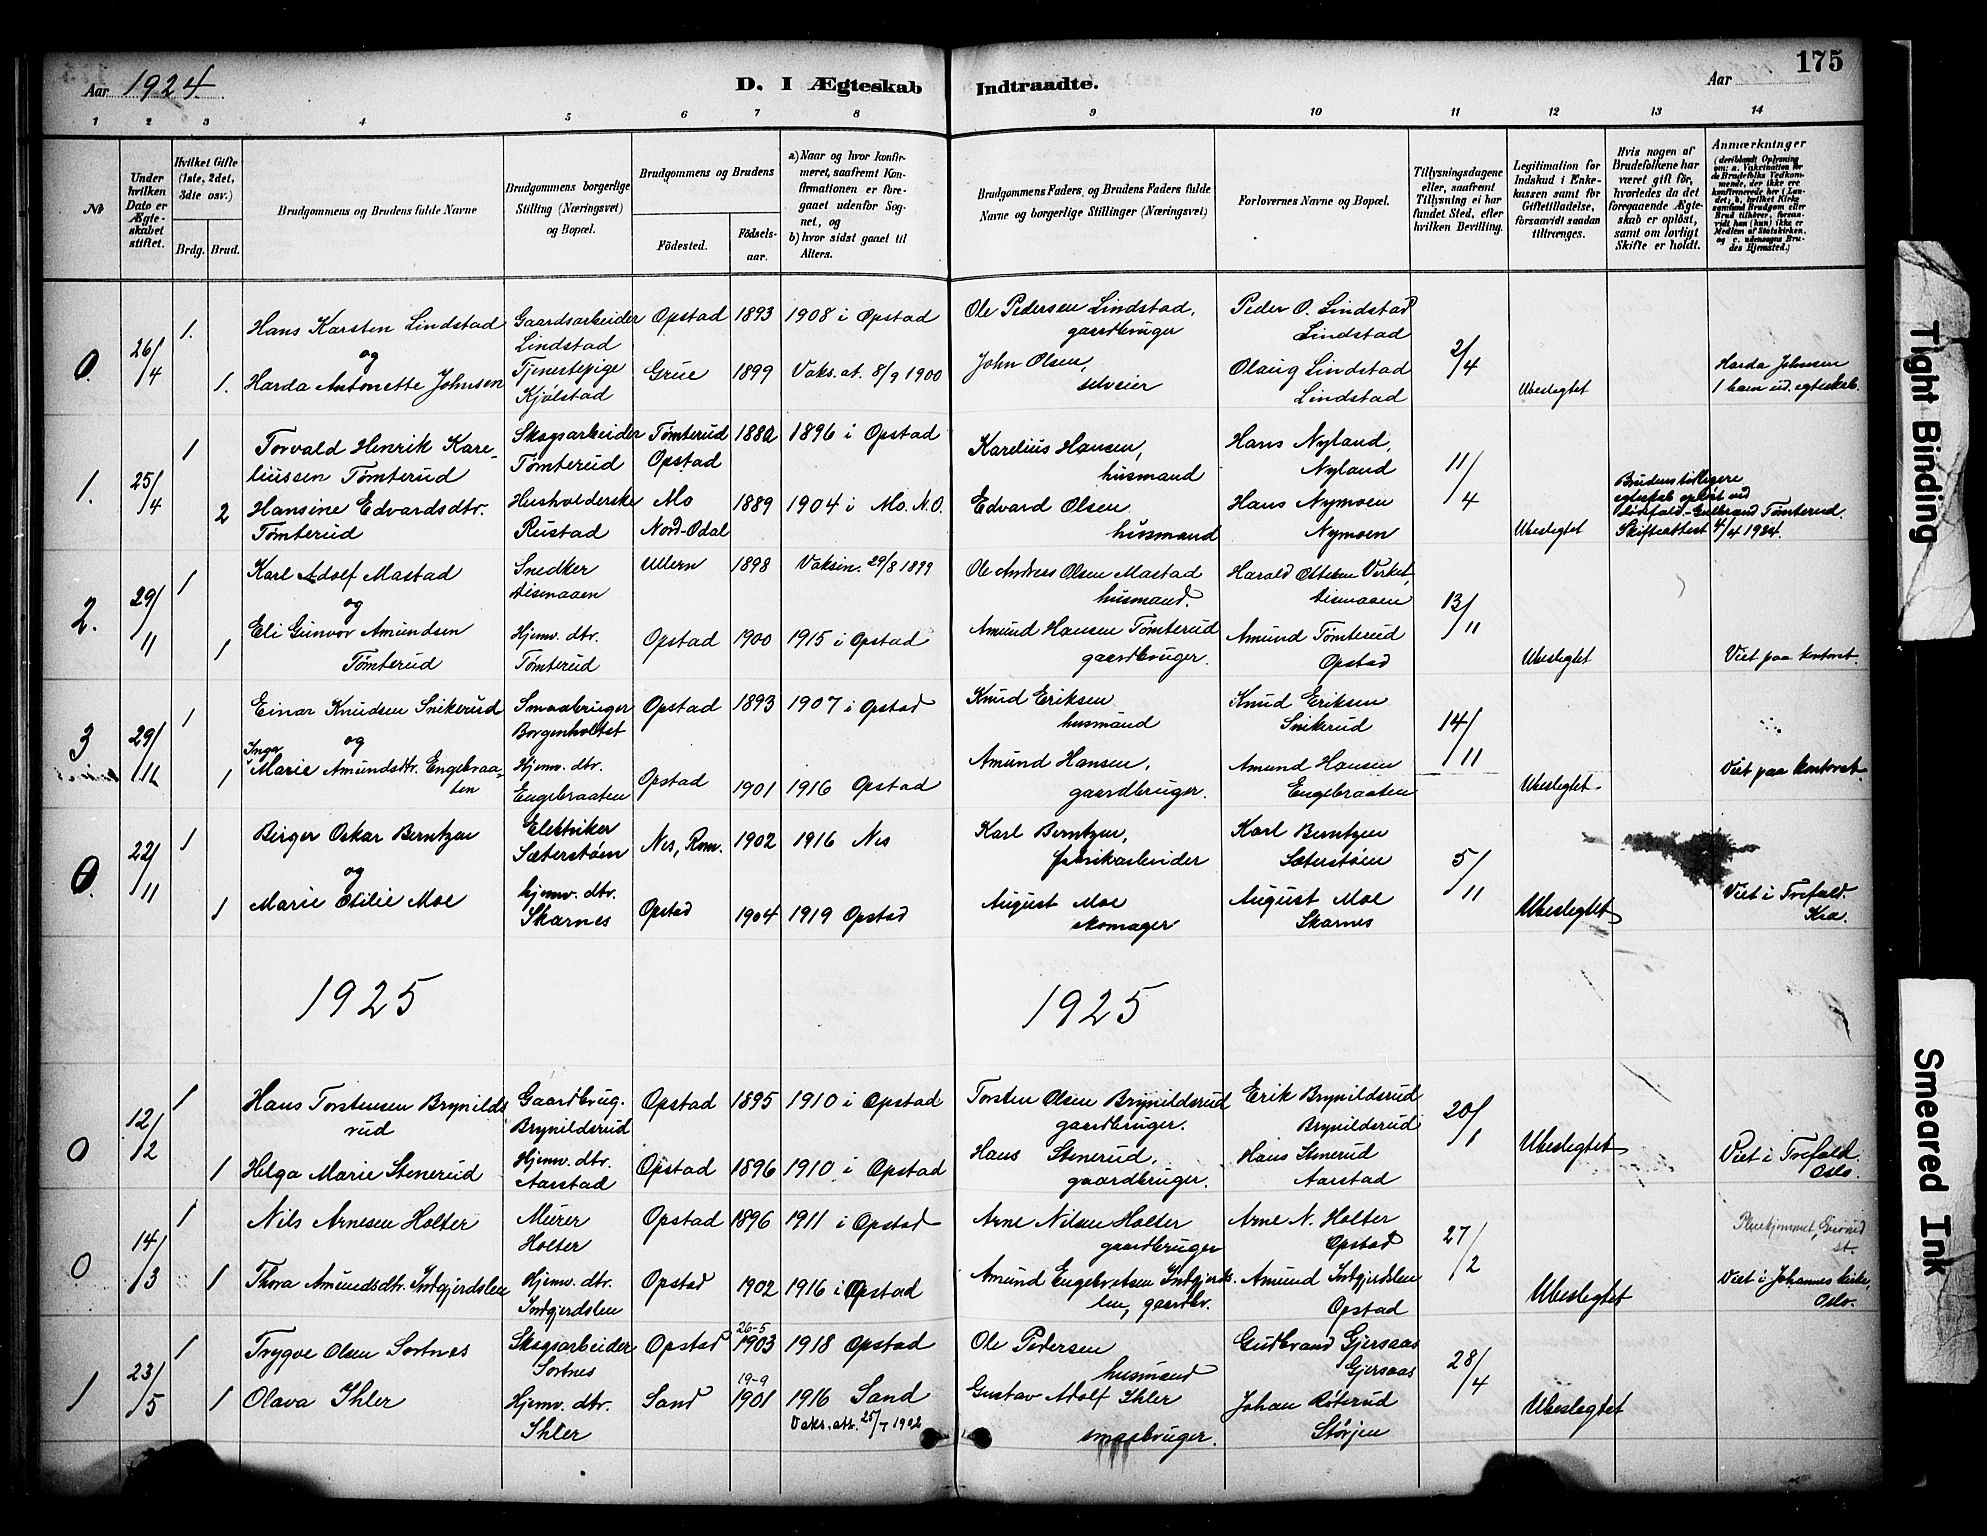 175
Aar 1924.
D. I Ægteskab Indtraadte.
Aar
1 2 3 4 5 6 7 8 9 10 11 12 13 14
No
Under hvilken Dato er Ægteskabet stiftet.
Hvilket Gifte (1ste, 2det, 3die osv.)
Brdg. Brud.
Brudgommens og Brudens fulde Navne
Brudgommens borgerlige Stilling (Næringsvei) og Bopæl.
Brudgommens og Brudens
Födested.
Födselsaar.
a) Naar og hvor konfirmeret, saafremt Konfirmationen er foregaaet udenfor Sognet, og
b) hvor sidst gaaet til Alters.
Brudgommens Faders, og Brudens Faders fulde Navne og borgerlige Stillinger (Næringsvei)
Forlovernes Navne og Bopæl.
Tillysningsdagene eller, saafremt Tillysning ei har fundet Sted, efter hvilken Bevilling.
Legitimation for Indskud i Enkekassen samt for Giftetilladelse, forsaavidt saadan tiltrænges.
Hvis nogen af Brudefolkene har været gift för, hvorledes da det foregaaende Ægteskab er oplöst, samt om lovligt Skifte er holdt.
Anmærkninger
(deriblandt Oplysning om: a. Vakcination for de Brudefolks Vedkommende, der ikke ere konfirmerede her i Landet; b. hvilket Kirkesamfund Brudgom eller Brud tilhører, forsavidt han (hun) ikke er Medlem af Statskirken, og c. udensogns Brudes Hjemsted.)
0. 26/4 1. Hans Karsten Lindstad Gaardsarbeider Lindstad Opstad 1893 1908 i Opstad Ole Pedersen Lindstad, gaardbruger Peder O. Lindstad Lindstad 2/4
og
1. Harda Antonette Johnsen Tjenestepige Kjølstad Grue 1899 Vaks.at. 8/9 1900 John Olsen, selveier Olaug Lindstad Lindstad Ubeslegtet Harda Johnsen 1 barn ud. egteskab.
1. 25/4 1 Torvald Henrik Kareliussen Tømterud Skogsarbeider Tømterud Tømterud Opstad 1882 1896 i Opstad Karelius Hansen, husmand Hans Nyland, Nyland 11/4
2 Hansine Edvardsdtr. Tømterud Husholderske Rustad Mo Nord-Odal 1889 1904 i Mo. N.O. Edvard Olsen husmand Hans Nymoen Nymoen Ubeslegtet Brudens tidligere egteskab opløst ved dødsfald - Gulbrand Tømterud. Skifteattest 4/4 1924.
2. 29/11 1 Karl Adolf Mastad Snedker Disenaaen Ullern 1898 Vaksin. 29/8 1899 Ole Andreas Olsen Mastad husmand. Harald Ottesen Virket, Disenaaen 13/11
og
1 Eli Gunvor Amundsen Tømterud Hjemv. dtr. Tømterud Opstad 1900 1915 i Opstad Amund Hansen Tømterud gaardbruger. Amund Tømterud Opstad Ubeslegtet Viet paa kontoret.
3 29/11 1 Einar Knudsen Snikerud Smaabruger Borgenholtet Opstad 1893 1907 i Opstad Knud Eriksen husmand Knud Eriksen Snikerud 14/11
og
1 Inga Marie Amundsdtr. Engebraaten Hjemv. dtr. Engebraaten Opstad 1901 1916 Opstad Amund Hansen, gaardbruger. Amund Hansen Engebraaten Ubeslegtet. Viet paa kontoret
0. 22/11 1 Birger Oskar Berntzen Elektriker Sæterstøen Nes, Rom. 1902 1916 Nes Karl Berntzen, fabrikarbeider Karl Berntzen Sæterstøen 5/11
og
1 Marie Otilie Moe hjemv. dtr. Skarnes Opstad 1904 1919 Opstad August Moe skomager August Moe Skarnes Ubeslegtet Viet i Trefold. Kra.
1925 1925
0 12/2 1 Hans Torstensen Brynildsrud Gaardbrug. Brynildsrud Opstad 1895 1910 i Opstad Torsten Olsen Brynildsrud gaardbruger. Erik Brynildsrud Brynildsrud 20/1
1 Helga Marie Stenerud Hjemv. dtr. Aarstad Opstad 1896 1910 i Opstad Hans Stenerud, gaardbruger. Hans Stenerud Aarstad Ubeslegtet Viet i Trefold. Oslo.
0 14/3 1 Nils Arnesen Holter Murer Holter Opstad 1896 1911 i Opstad Arne Nilsen Holter gaardbruger Arne N. Holter Opstad 27/2
1 Thora Amundsdtr. Indgjerdslen Hjemv. dtr. Indgjerdslen Opstad 1902 1916 i Opstad Amund Engebretsen Indgjerdslen, gaardbr. Amund Indgjerdslen Opstad Ubeslegtet Viet i Johannes kirke, Oslo.
1 23/5 1 Trygve Olsen Sortnes Skogsarbeider Sortnes Opstad 26-5 1903 1918 Opstad Ole Pedersen husmand Gudbrand Gjersaas Gjersaas 28/4
1 Olava Ihler Hjemv. dtr. Ihler Sand 19-9 1901 1916 Sand Vaks. att. 25/7 1902 Gustav Adolf Ihler smaabruger. Johan Røterud Størjen Ubeslegtet
Tight Binding
Smeared Ink